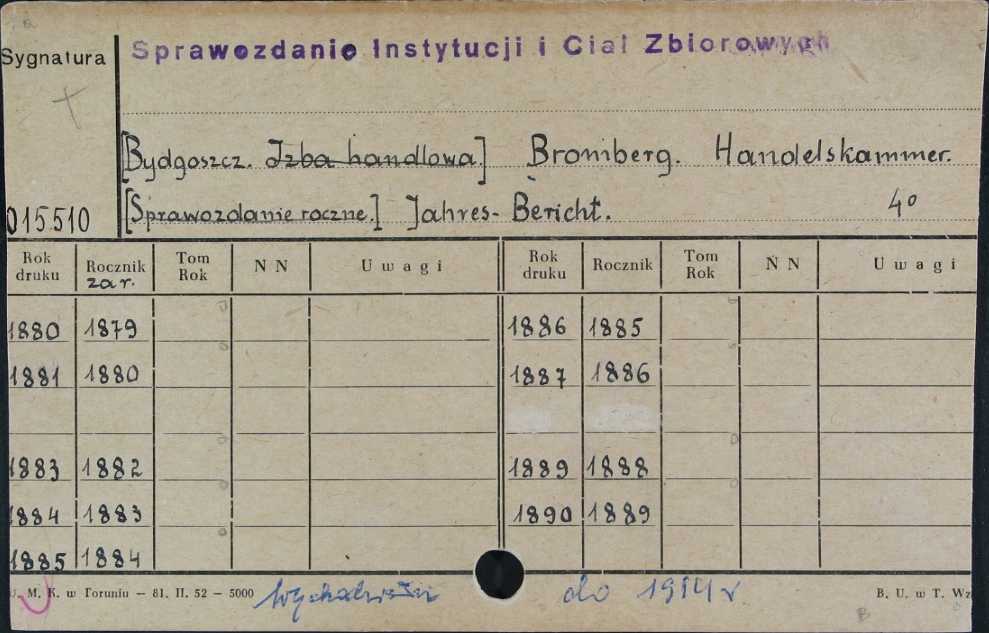 Sprawozdanie Instytucji i Ciał Zbiorowych
Sygnatura
[Bydgoszcz. Izba handlowa.] Bromberg. Handelskammer.
015510 [Sprawozdanie roczne.] Jahres-Bericht. 4°
Rok druku Rocznik za r. Tom Rok N N Uwagi Rok druku Rocznik Tom Rok N N Uwagi
1880 1879 1886 1885
1881 1880 1887 1886
1883 1882 1889 1888
1884 1883 1890 1889
1885 1884
U. M. K. w Toruniu – 81. II. 52 – 5000 do 1914 r B. U. w T. Wz
B